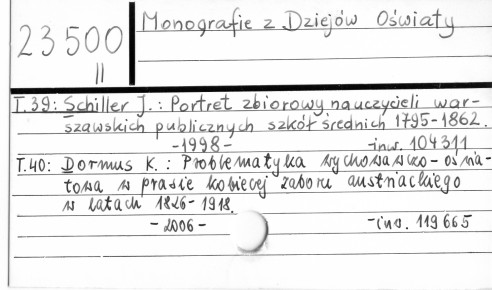 23500
II
Monografie z Dziejów Oświaty
T.39: Schiller J.: Portret zbiorowy nauczycieli war-
szawskich publicznych szkół średnich 1795-1862.
-1998- -inw. 104311
T.40: Dormus K.: Problematyka wychowawczo-oświa-
towa w prasie kobiecej zaboru austriackiego
w latach 1826-1918.
-2006- -inw. 119665